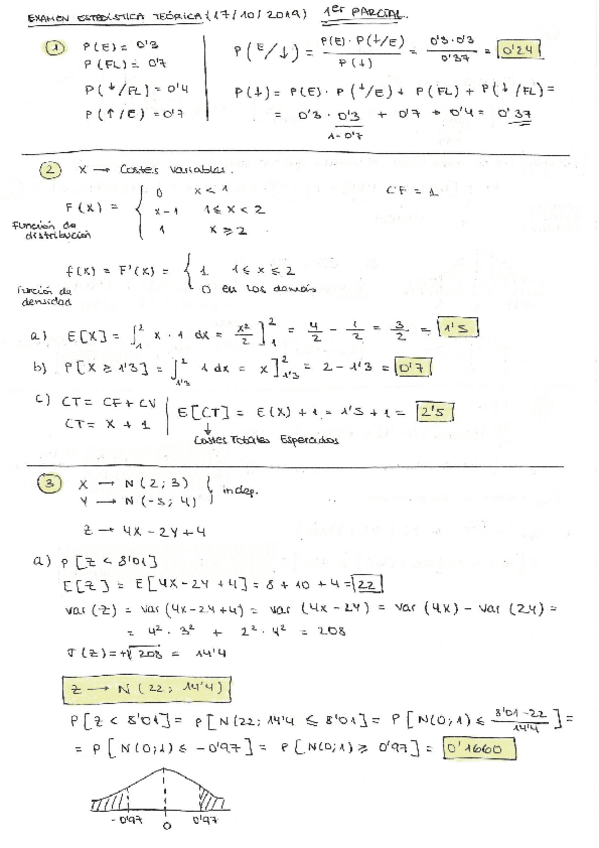 EXAMEN ESTADÍSTICA TEÓRICA (17/10/2019) 1er PARCIAL.
1 P(E) = 0'3
P(FL) = 0'7
P(↓/FL) = 0'4
P(↑/E) = 0'7
P(E/↓) = P(E)·P(↓/E) / P(↓) = 0'3·0'3 / 0'37 = 0'24
P(↓) = P(E)·P(↓/E) + P(FL) + P(↓/FL) =
= 0'3 · 0'3 + 0'7 + 0'4 = 0'37
1-0'7
2 X → Costes variables.
F(X) = { 0 x < 1 CF = 1
x-1 1 ≤ x < 2
1 x ≥ 2
Función de distribución
f(x) = F'(x) = { 1 1 ≤ x ≤ 2
0 en los demás
Función de densidad
a) E[X] = ∫₁² x · 1 dx = x²/2 ]₁² = 4/2 - 1/2 = 3/2 = 1'5
b) P[X ≥ 1'3] = ∫₁'₃² 1 dx = x]₁'₃² = 2 - 1'3 = 0'7
c) CT = CF + CV
CT = X + 1
E[CT] = E(X) + 1 = 1'5 + 1 = 2'5
↓
Costes Totales Esperados
3 X → N(2; 3)
Y → N(-5; 4) } indep.
Z → 4X - 2Y + 4
a) P[Z < 8'01]
E[Z] = E[4X - 2Y + 4] = 8 + 10 + 4 = 22
Var(Z) = Var(4X - 2Y + 4) = Var(4X - 2Y) = Var(4X) - Var(2Y) =
= 4² · 3² + 2² · 4² = 208
σ(Z) = +√208 = 14'4
Z → N(22; 14'4)
P[Z < 8'01] = P[N(22; 14'4 ≤ 8'01] = P[N(0;1) ≤ 8'01-22 / 14'4] =
= P[N(0;1) ≤ -0'97] = P[N(0;1) ≥ 0'97] = 0'1660
-0'97 0 0'97